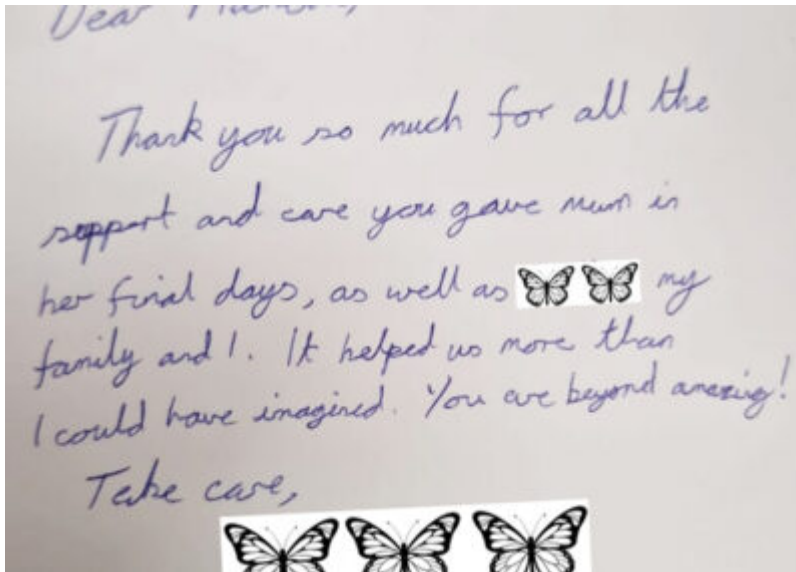 Dear
Thank you so much for all the
support and care you gave mum in
her final days, as well as my
family and I. It helped us more than
I could have imagined. You are beyond amazing!
Take care,